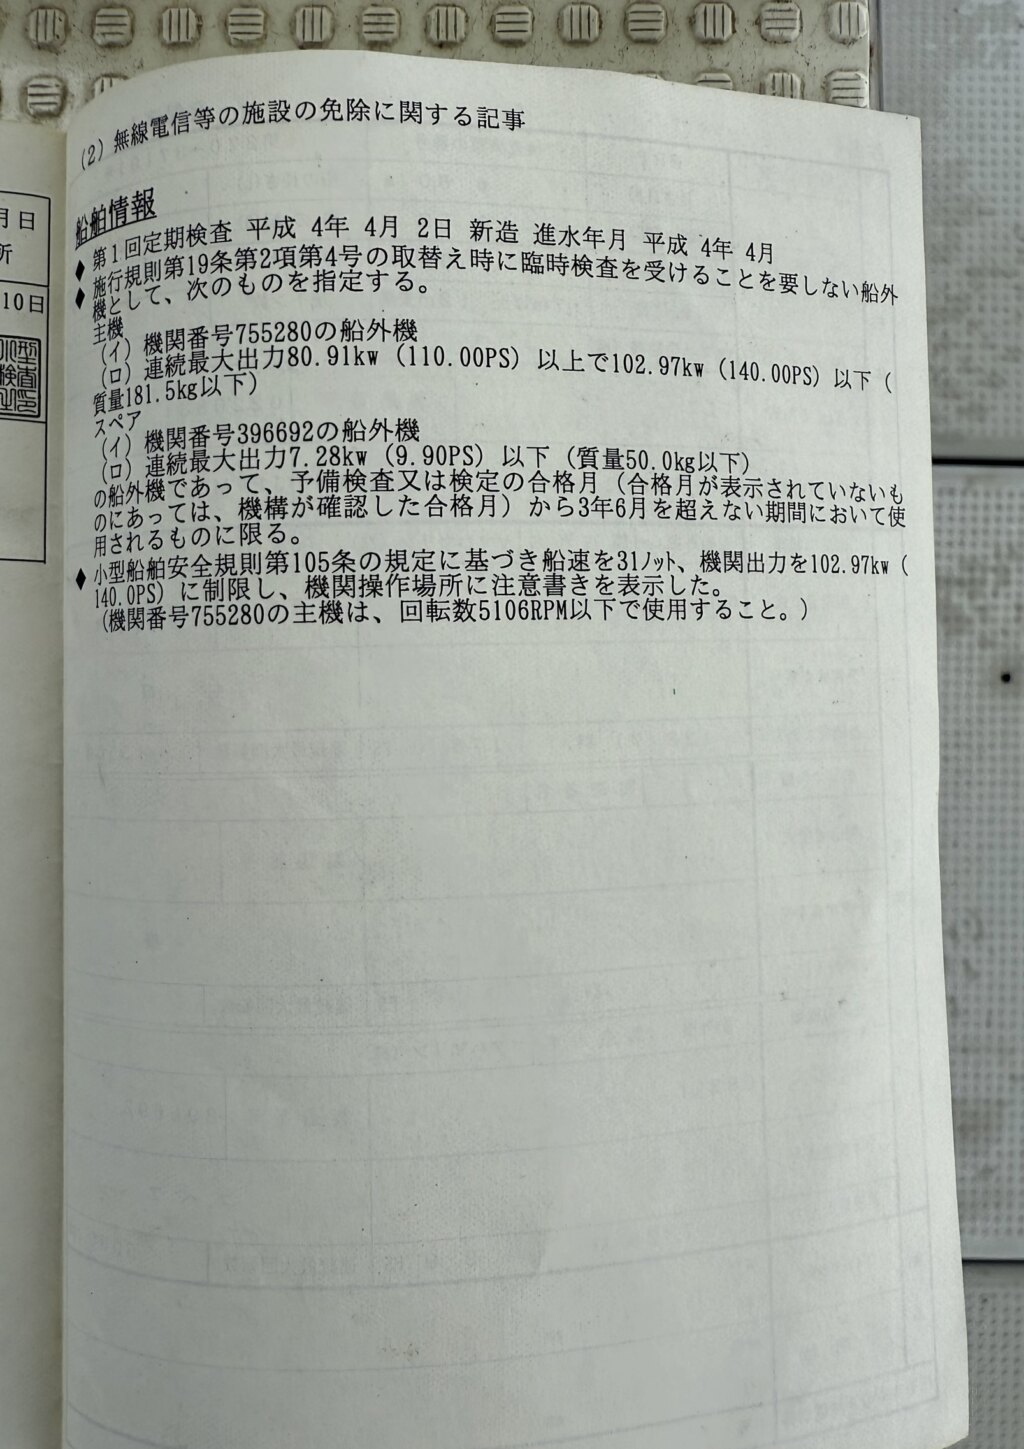 月日
所
10日
(2) 無線電信等の施設の免除に関する記事
船舶情報
◆ 第1回定期検査 平成 4年 4月 2日 新造 進水年月 平成 4年 4月
◆ 施行規則第19条第2項第4号の取替え時に臨時検査を受けることを要しない船外
機として、次のものを指定する。
主機
(イ) 機関番号755280の船外機
(ロ) 連続最大出力80.91kw (110.00PS) 以上で102.97kw (140.00PS) 以下 (
質量181.5kg以下)
スペア
(イ) 機関番号396692の船外機
(ロ) 連続最大出力7.28kw (9.90PS) 以下 (質量50.0kg以下)
の船外機であって、予備検査又は検定の合格月 (合格月が表示されていないも
のにあっては、機構が確認した合格月) から3年6月を超えない期間において使
用されるものに限る。
◆ 小型船舶安全規則第105条の規定に基づき船速を31ノット、機関出力を102.97kw (
140.0PS) に制限し、機関操作場所に注意書きを表示した。
(機関番号755280の主機は、回転数5106RPM以下で使用すること。)